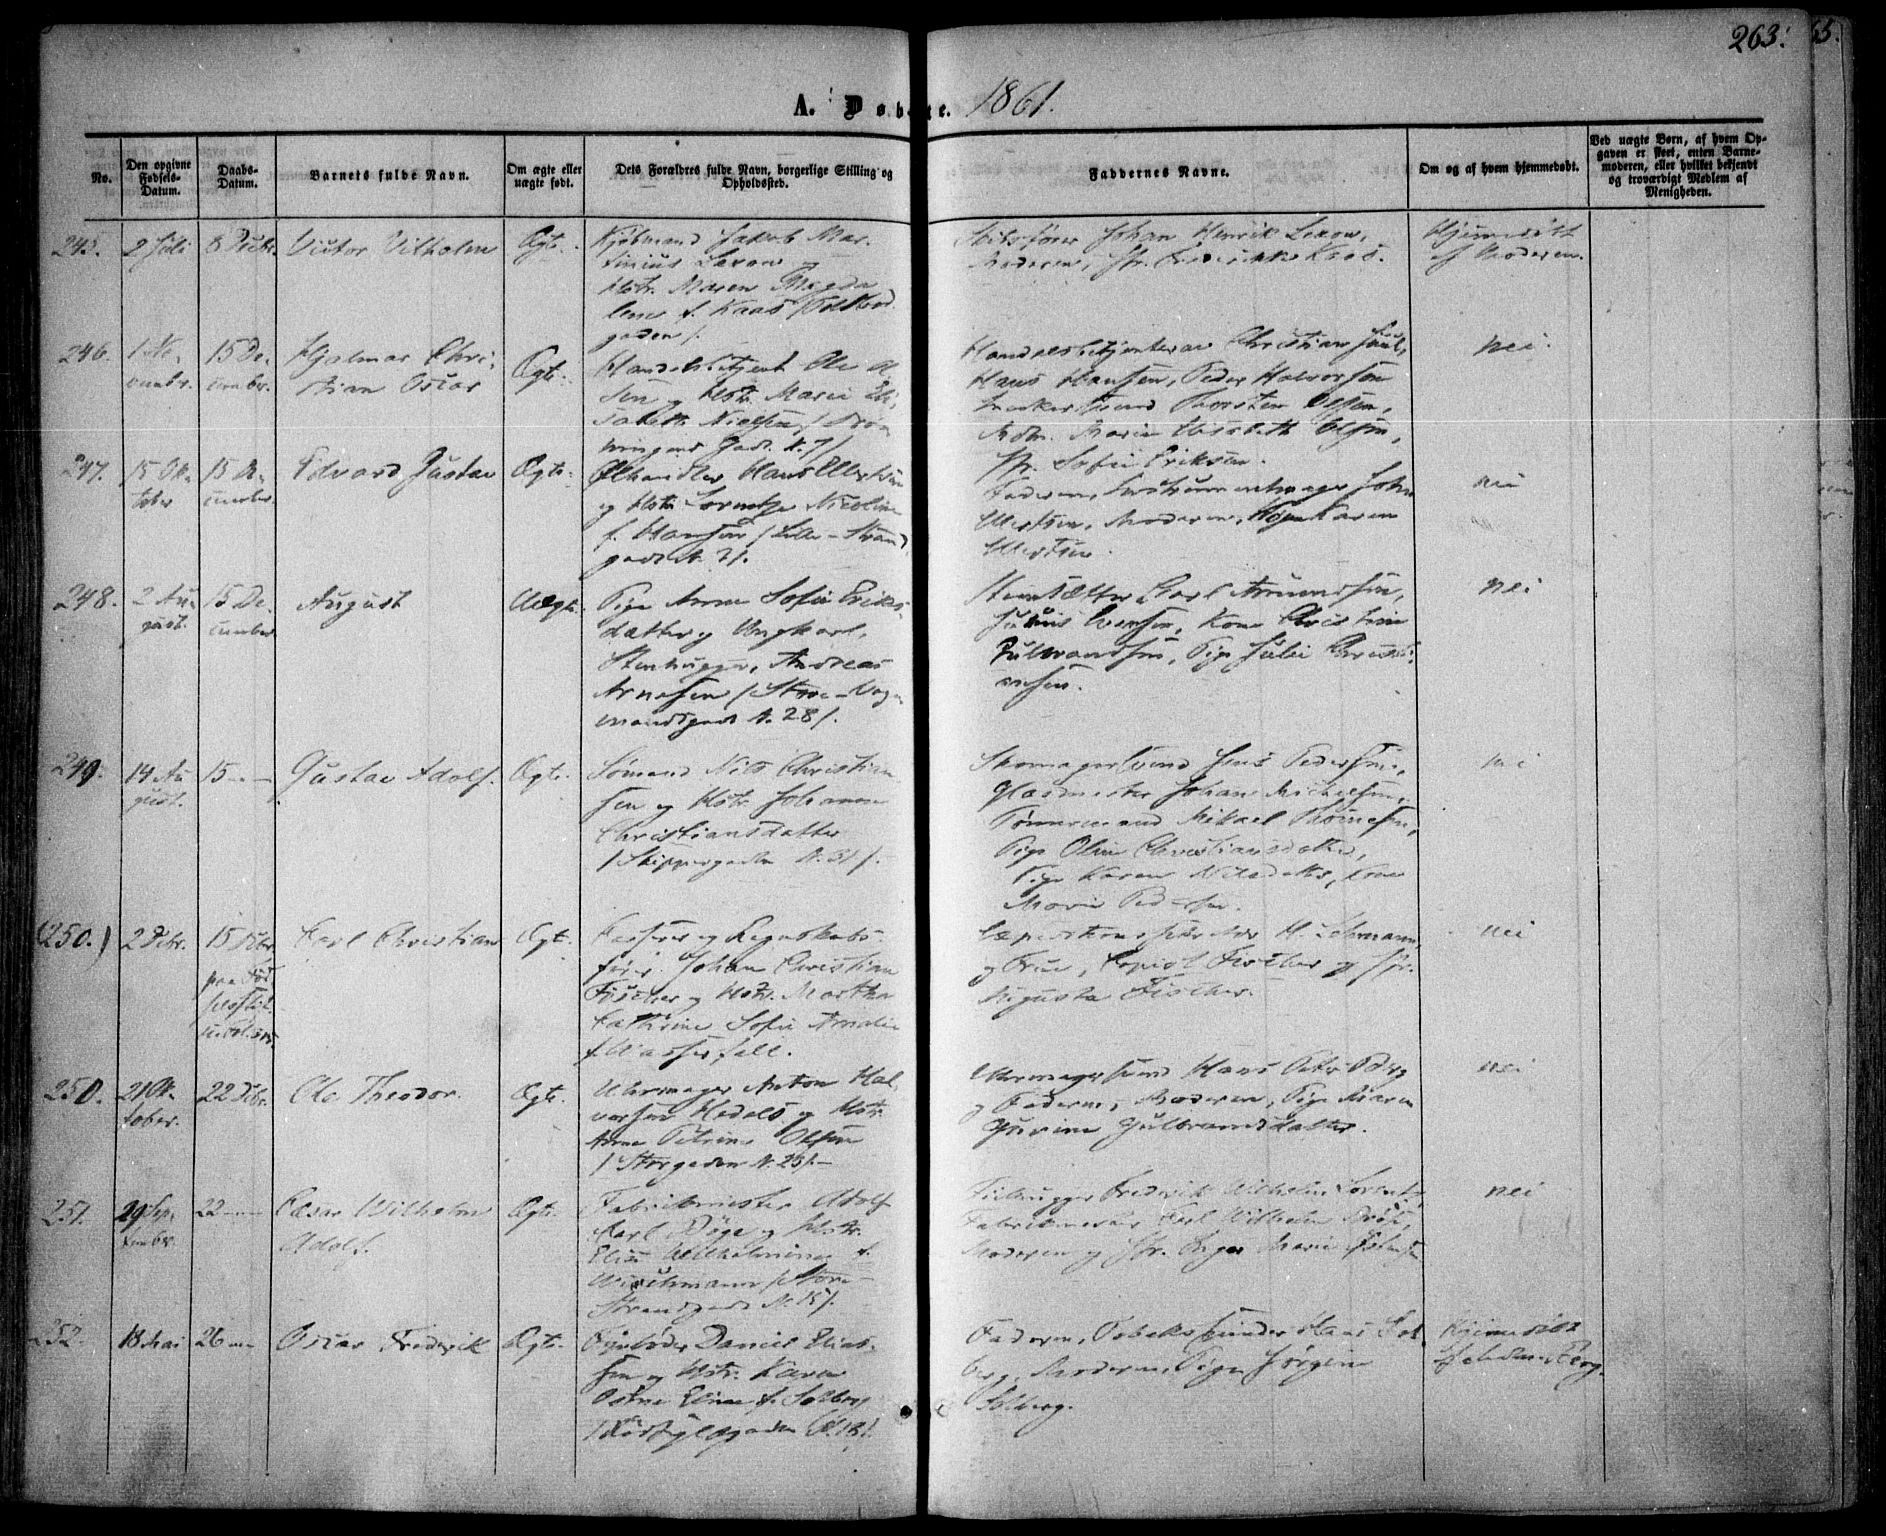 263.
A. Døbte. 1861.
No.
Den opgivne Fødsels-Datum.
Daabs-Datum.
Barnets fulde Navn.
Om ægte eller uægte født.
Dets Forældres fulde Navn, borgerlige Stilling og Opholdssted.
Faddernes Navne.
Om og af hvem hjemmedøbt.
Ved uægte Børn, af hvem Opgaven er skeet, enten Barnemoderen, eller hvilket bekjendt og troværdigt Medlem af Menigheden.
245.
2 Juli
8 Decbr.
Victor Vilhelm
Ægte.
Kjøbmand Jakob Mar-
tinius Lexow og
Hstr. Maren Magda
lene f. Kaas /Toldbod
gaden/.
Skibsfører Johan Henrik Lexow,
Moderen, Fr. Frederikke Kaas.
Hjemmedøbt
af Moderen.
246.
1 No-
vember.
15 De-
cember.
Hjalmar Chri-
stian Oscar
Ægte.
Handelsbetjent Ole Ol
sen og Hstr. Marie Eli-
sabeth Nielsen / Dron
ningens Gade N. 7/
Handelsbetjenterne Christian Juul,
Hans Hansen, Peder Halvorsen
Thorsten Olssen,
Mdm. Marie Elisabeth Olsen,
Fr. Sofie Eriksen.
nei.
247.
15 Ok-
tober
15 De-
cember.
Edvard Gustav
Ægte.
Ølhandler Hans Ellertsen
og Hstr. Nicoline
f. Hansen /Lille-Strand
gade N. 3/.
Faderen, Instrumentmager John
Ellertsen, Moderen, Karen
Ellertsen.
nei
248.
2 Au-
gust.
15 De-
cember
August
Uægte.
Pige Anne Sofie Eriks-
datter og Ungkarl,
Stenhugger, Andreas
Arnesen /Store-Vogn
mandsgade N. 28/.
Karl Amundsen,
Julius Evensen, Kone Christine
Gulbrandsen, Pige Julie Christi-
ansen.
nei
249.
14 Au
gust.
15 —
Gustav Adolf.
Ægte.
Sømand Nils Christian
sen og Hstr. Johanne
Christiansdatter
/Skippergaden N. 3/.
Skomagersvend Jens Pedersen,
Glasmester Johan Mickelsen,
Tømmermand Mikael Thomesen,
Pige Oline Christiansdatter,
Pige Karen Nilsdatter, Kone
Marie Pedersen.
nei
(250.)
2 Decbr.
15 Decbr.
paa Fød
selsstif-
telsen.
Carl Christian
Ægte.
Kasserer og Regnskabs-
fører Johan Christian
Fischer og Hstr. Martha
Cathrine Sofie Amalie
f. Wasserfall.
H. Lehmann
og Frue, Kopist Fischer og Fr.
Augusta Fischer.
nei
250.
21 Ok-
tober.
22 Decbr.
Ole Theodor.
Ægte.
Uhrmager Anton Hal-
vorsen Hedels og Hstr.
Anne Petrine Olsen
/Storgaden N. 25/.—
Uhrmagersvend Hans Petr. Berg
og Faderen, Moderen, Pige Maren
Gurine Gulbrandsdatter.
nei
251.
29 Sep-
tember.
22 —
Cæsar Wilhelm
Adolf.
Ægte.
Fabrikmester Adolf
Karl Döge og Hstr.
Elise Wilhelmine f.
Wischmann /Store-
Strandgade N. 15/.
Frederik Wilhelm Lorentz,
Fabrikmester Karl Wilhelm
Moderen og Fr. Inger Marie
nei
252.
18 Mai
26 —
Oscar Frederik
Ægte.
Fyrbøder Daniel Elias-
sen og Hstr. Karen
Elise f. Solberg
Faderen, Tobaksspinder Hans Sol
berg, Moderen, Pige Jørgine
Solberg.
Hjemmedøbt
Berg.